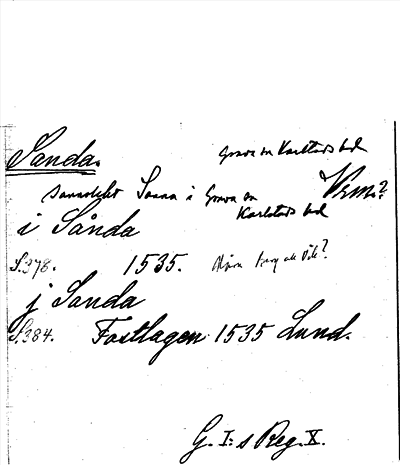 Sanda.
Grava sn Karlstads hd
Värml?
sannolikt Sanna i Grava sn
Karlstads hd
i Sånda
S. 378. 1535.
j Sanda
S. 384. Fastlagen 1535 Lund.
G. I:s Reg. X.